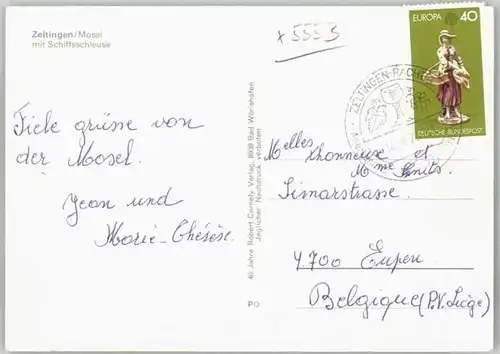 Zeltingen/Mosel
mit Schiffsschleuse
x 5553
EUROPA 40
DEUTSCHE BUNDESPOST
ZELTINGEN-RACH
Fiele grüsse von
der Mosel.
Jean und
Marie-Thérèse.
40 Jahre Robert Cornely Verlag, 8939 Bad Wörishofen
Jeglicher Nachdruck verboten
PD
Melles Lhonneux et
Mme Smits.
Simarstrasse.
4700 Eupen
Belgique (P.V. Liège)